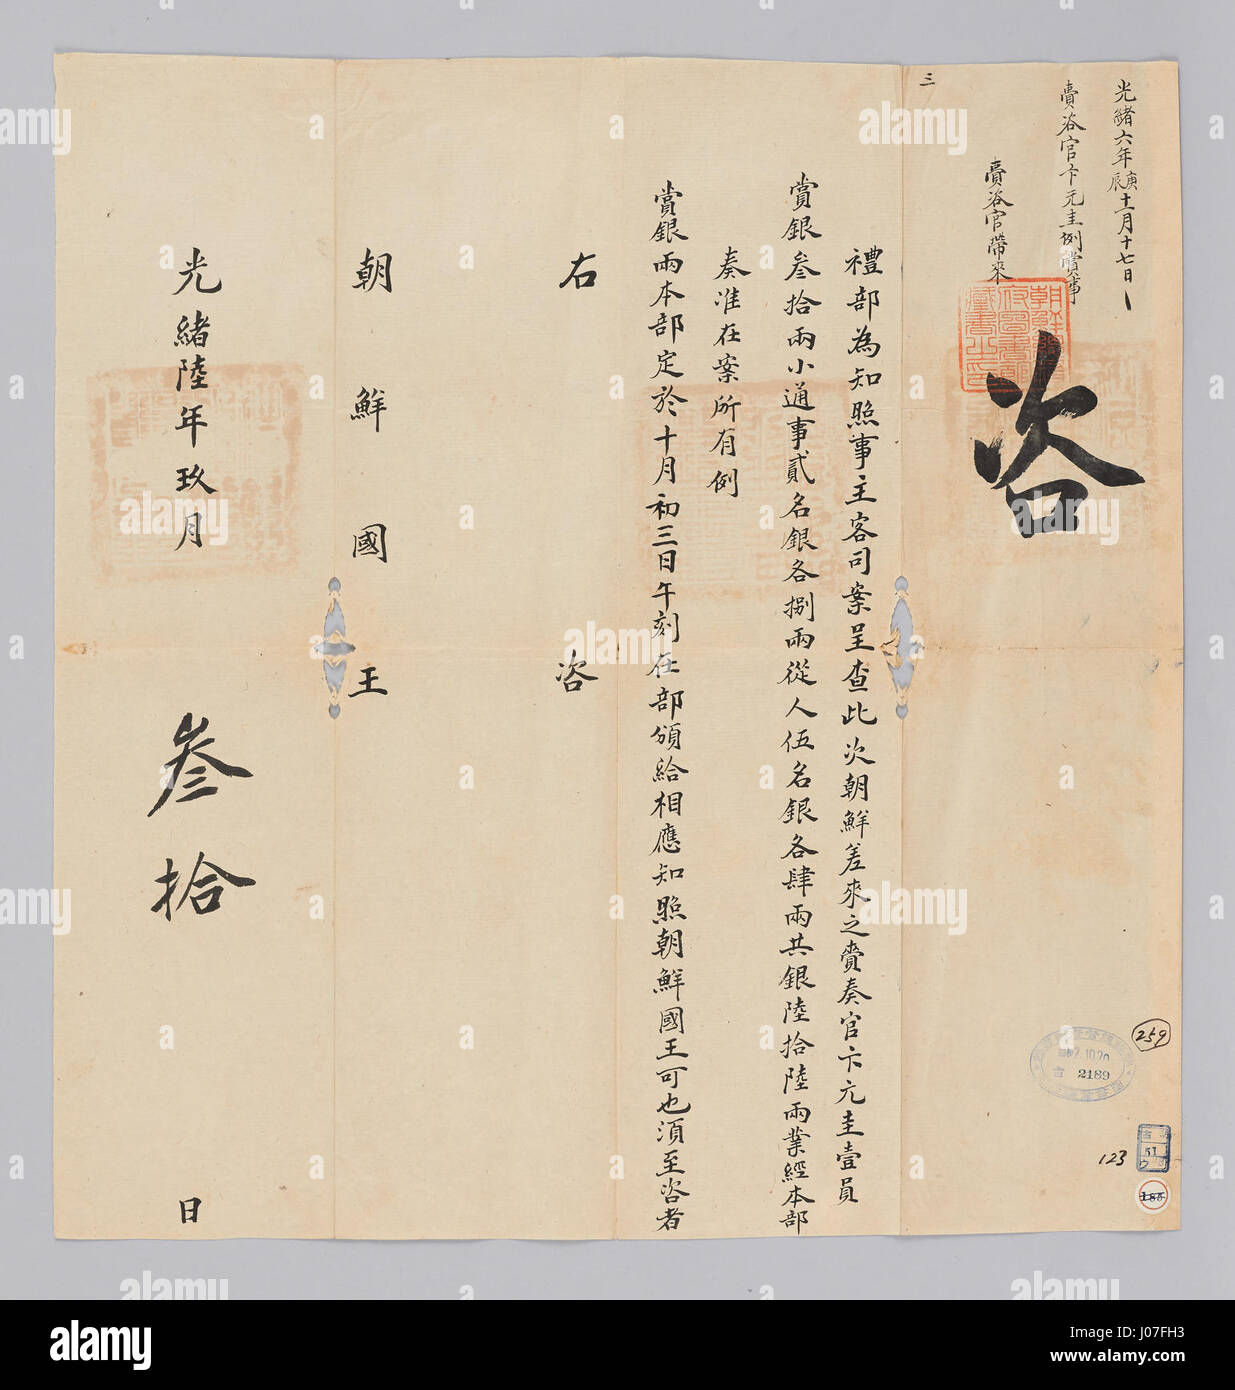 光緒六年庚辰十一月十七日
賫咨官卞元圭例賞事
賫咨官帶來
三
咨
禮部為知照事主客司案呈查此次朝鮮差來之賫奏官卞元圭壹員
賞銀叁拾兩小通事貳名銀各捌兩從人伍名銀各肆兩共銀陸拾陸兩業經本部
奏准在案所有例
賞銀兩本部定於十月初三日午刻在部頒給相應知照朝鮮國王可也須至咨者
右咨
朝鮮國王
光緒陸年玖月叁拾日
259
2.10.20
2189
51
ウ
123
186
alamy
a
alamy
Image ID: J07FH3
www.alamy.com